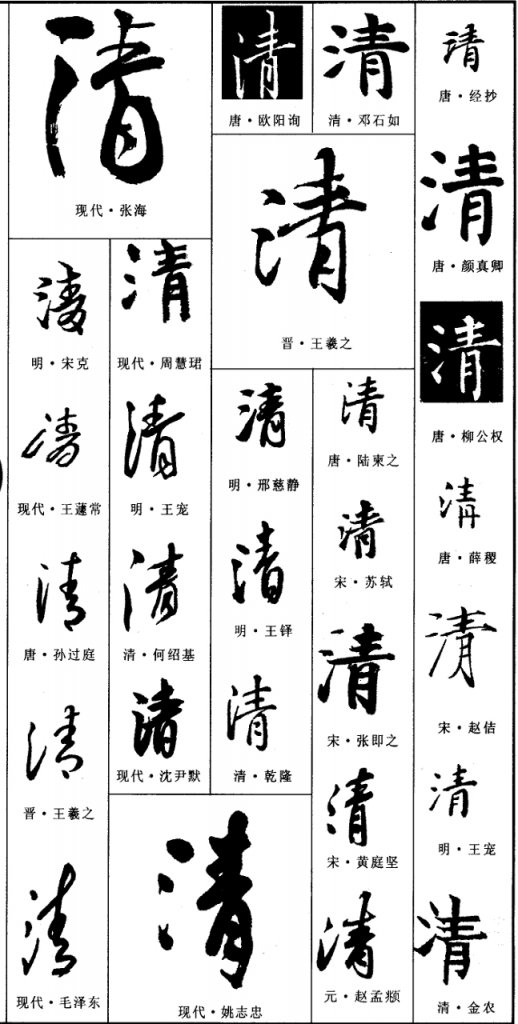 清
唐·经抄
清
唐·颜真卿
清
唐·柳公权
清
唐·薛稷
清
宋·赵佶
清
明·王宠
清
清·金农
清
清·邓石如
清
唐·欧阳询
清
晋·王羲之
清
唐·陆柬之
清
宋·苏轼
清
宋·张即之
清
宋·黄庭坚
清
元·赵孟頫
清
明·邢慈静
清
明·王铎
清
清·乾隆
清
现代·张海
清
现代·周慧珺
清
明·王宠
清
清·何绍基
清
现代·沈尹默
清
现代·姚志忠
清
明·宋克
清
现代·王蘧常
清
唐·孙过庭
清
晋·王羲之
清
现代·毛泽东